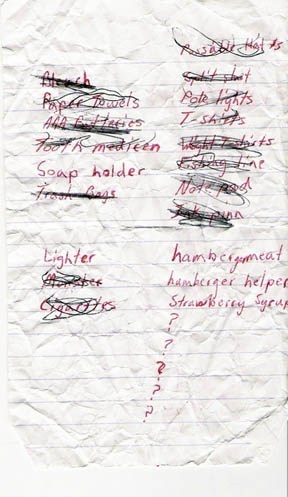 Bleach
Paper towels
AAA Batteries
Tooth medicen
Soap holder
Trash Bags
Lighter
Monster
Cigarettes
Hot
Split shot
Pole lights
T-shirts
T-shirts
Fishing line
Note pad
hamberger meat
hamberger helper
Strawberry Syrup
?
?
?
?
?